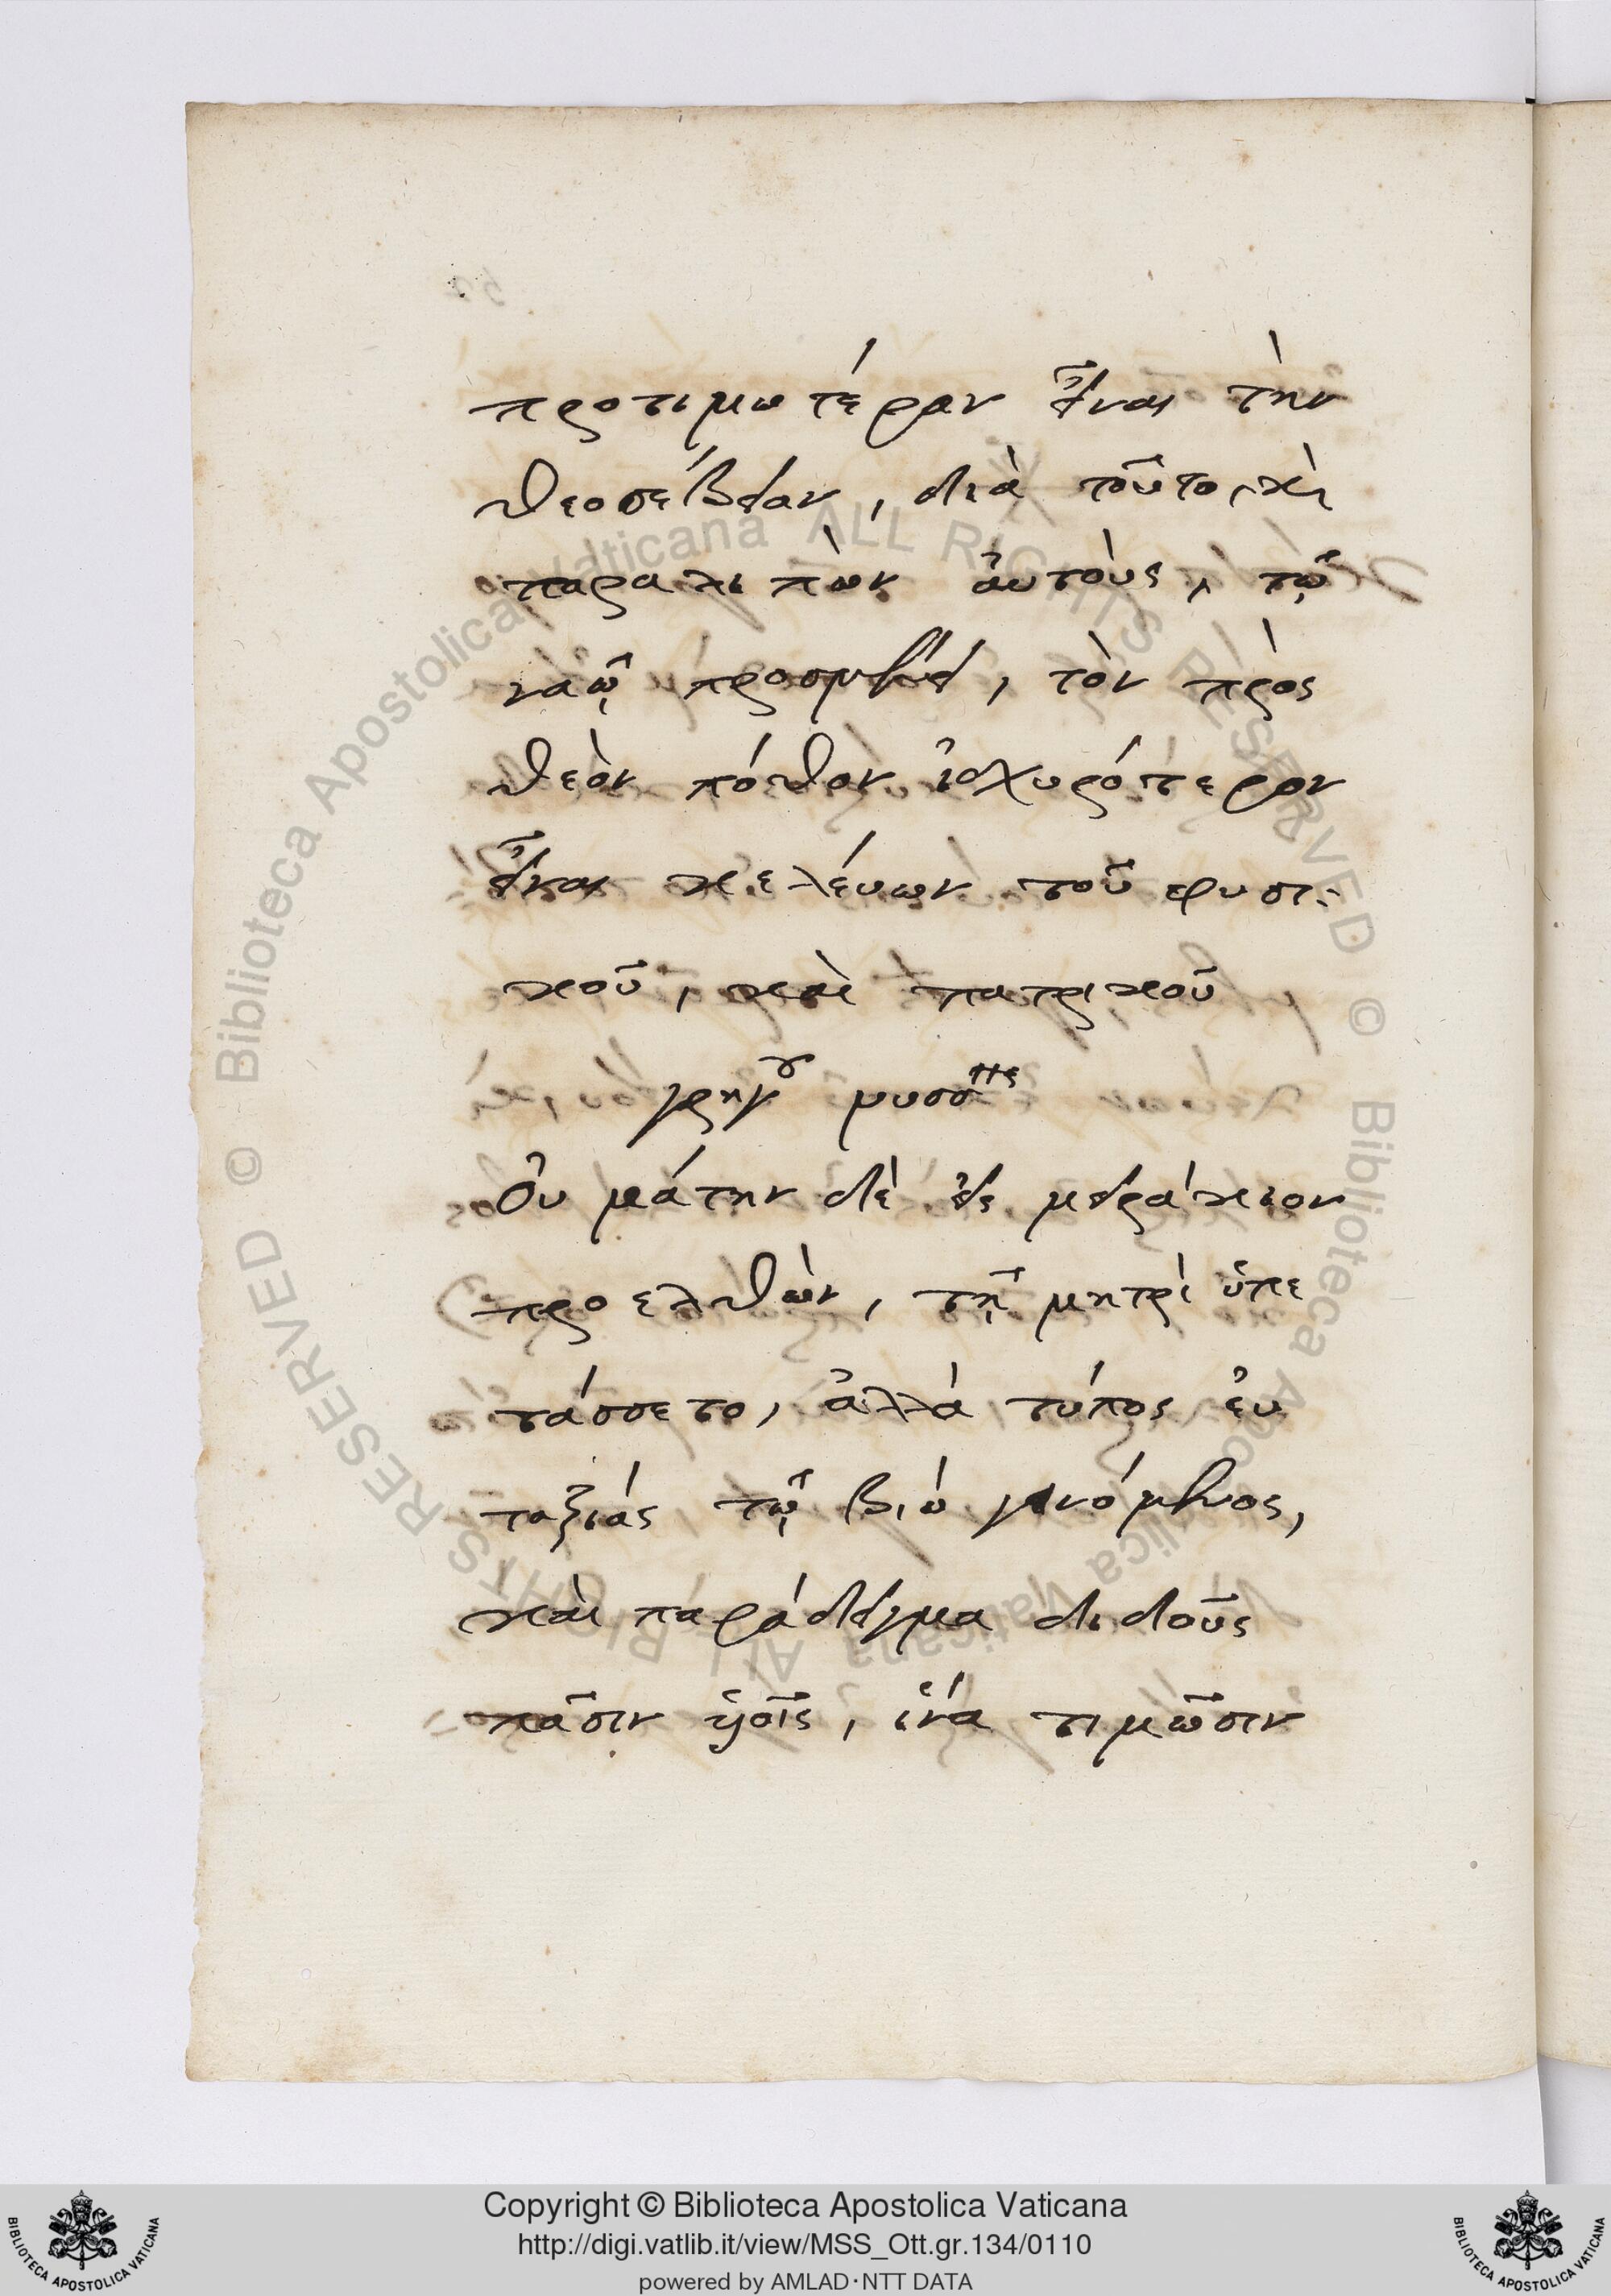 προτιμωτέραν εἶναι τὴν
θεοσέβειαν, διὰ τοῦτο, κὶ
παραλιπὼν ἀυτοὺς, τῷ
ναῷ προσμένει, τὸν πρὸς
θεὸν πόθον ἰσχυρότερον
εἶναι κελέυων τοῦ φυσι
κοῦ, καὶ πατρικοῦ
γρηγ νυσσης
Ὀυ μάτην δὲ εἰς μειράκιον
προελθὼν, τῇ μητρὶ ὑπε
τάσσετο, ἀλλὰ τύπος ἐυ
ταξιάς τῷ βιώ γινόμενος,
καὶ παράδειγμα διδοῦς
πᾶσιν ὑοῖς, ἱνά τιμῶσιν
Copyright © Biblioteca Apostolica Vaticana
http://digi.vatlib.it/view/MSS_Ott.gr.134/0110
powered by AMLAD·NTT DATA
BIBLIOTECA APOSTOLICA VATICANA
BIBLIOTECA APOSTOLICA VATICANA
© Biblioteca Apostolica Vaticana ALL RIGHTS RESERVED
© Biblioteca Apostolica Vaticana ALL RIGHTS RESERVED